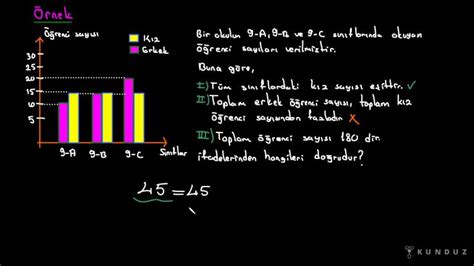 Örnek
Öğrenci sayısı
Kız
Erkek
30
25
20
15
14
10
5
9-A 9-B 9-C Sınıflar
Bir okulun 9-A, 9-B ve 9-C sınıflarında okuyan
öğrenci sayıları verilmiştir.
Buna göre,
I) Tüm sınıflardaki kız sayısı eşittir. ✓
II) Toplam erkek öğrenci sayısı, toplam kız
öğrenci sayısından fazladır. X
III) Toplam öğrenci sayısı 180 dir.
ifadelerinden hangileri doğrudur?
45 = 45
KUNDUZ